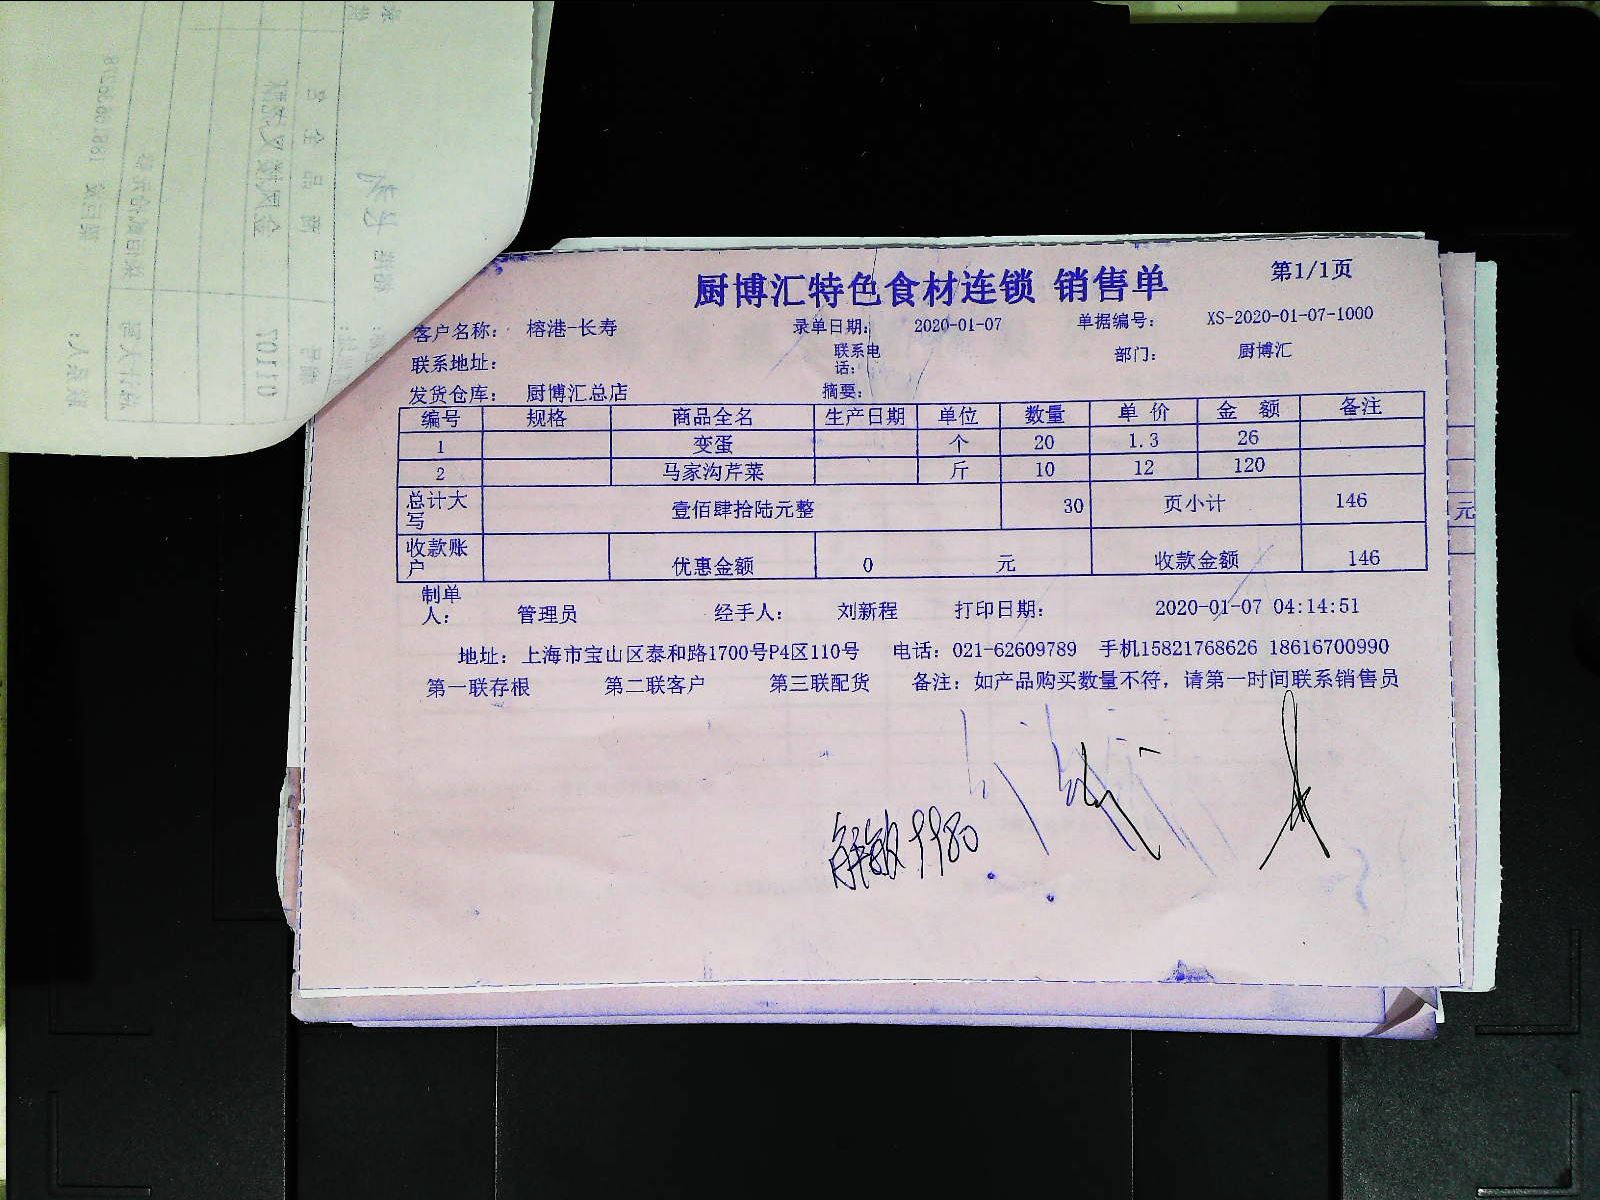 厨博汇特色食材连锁 销售单 第1/1页
客户名称： 榕港-长寿 录单日期： 2020-01-07 单据编号： XS-2020-01-07-1000
联系地址： 联系电话： 部门： 厨博汇
发货仓库： 厨博汇总店 摘要：
编号 规格 商品全名 生产日期 单位 数量 单价 金额 备注
1 变蛋 个 20 1.3 26
2 马家沟芹菜 斤 10 12 120
总计大写 壹佰肆拾陆元整 30 页小计 146
收款账户 优惠金额 0 元 收款金额 146
制单人： 管理员 经手人： 刘新程 打印日期： 2020-01-07 04:14:51
地址：上海市宝山区泰和路1700号P4区110号 电话：021-62609789 手机15821768626 18616700990
第一联存根 第二联客户 第三联配货 备注：如产品购买数量不符，请第一时间联系销售员
元